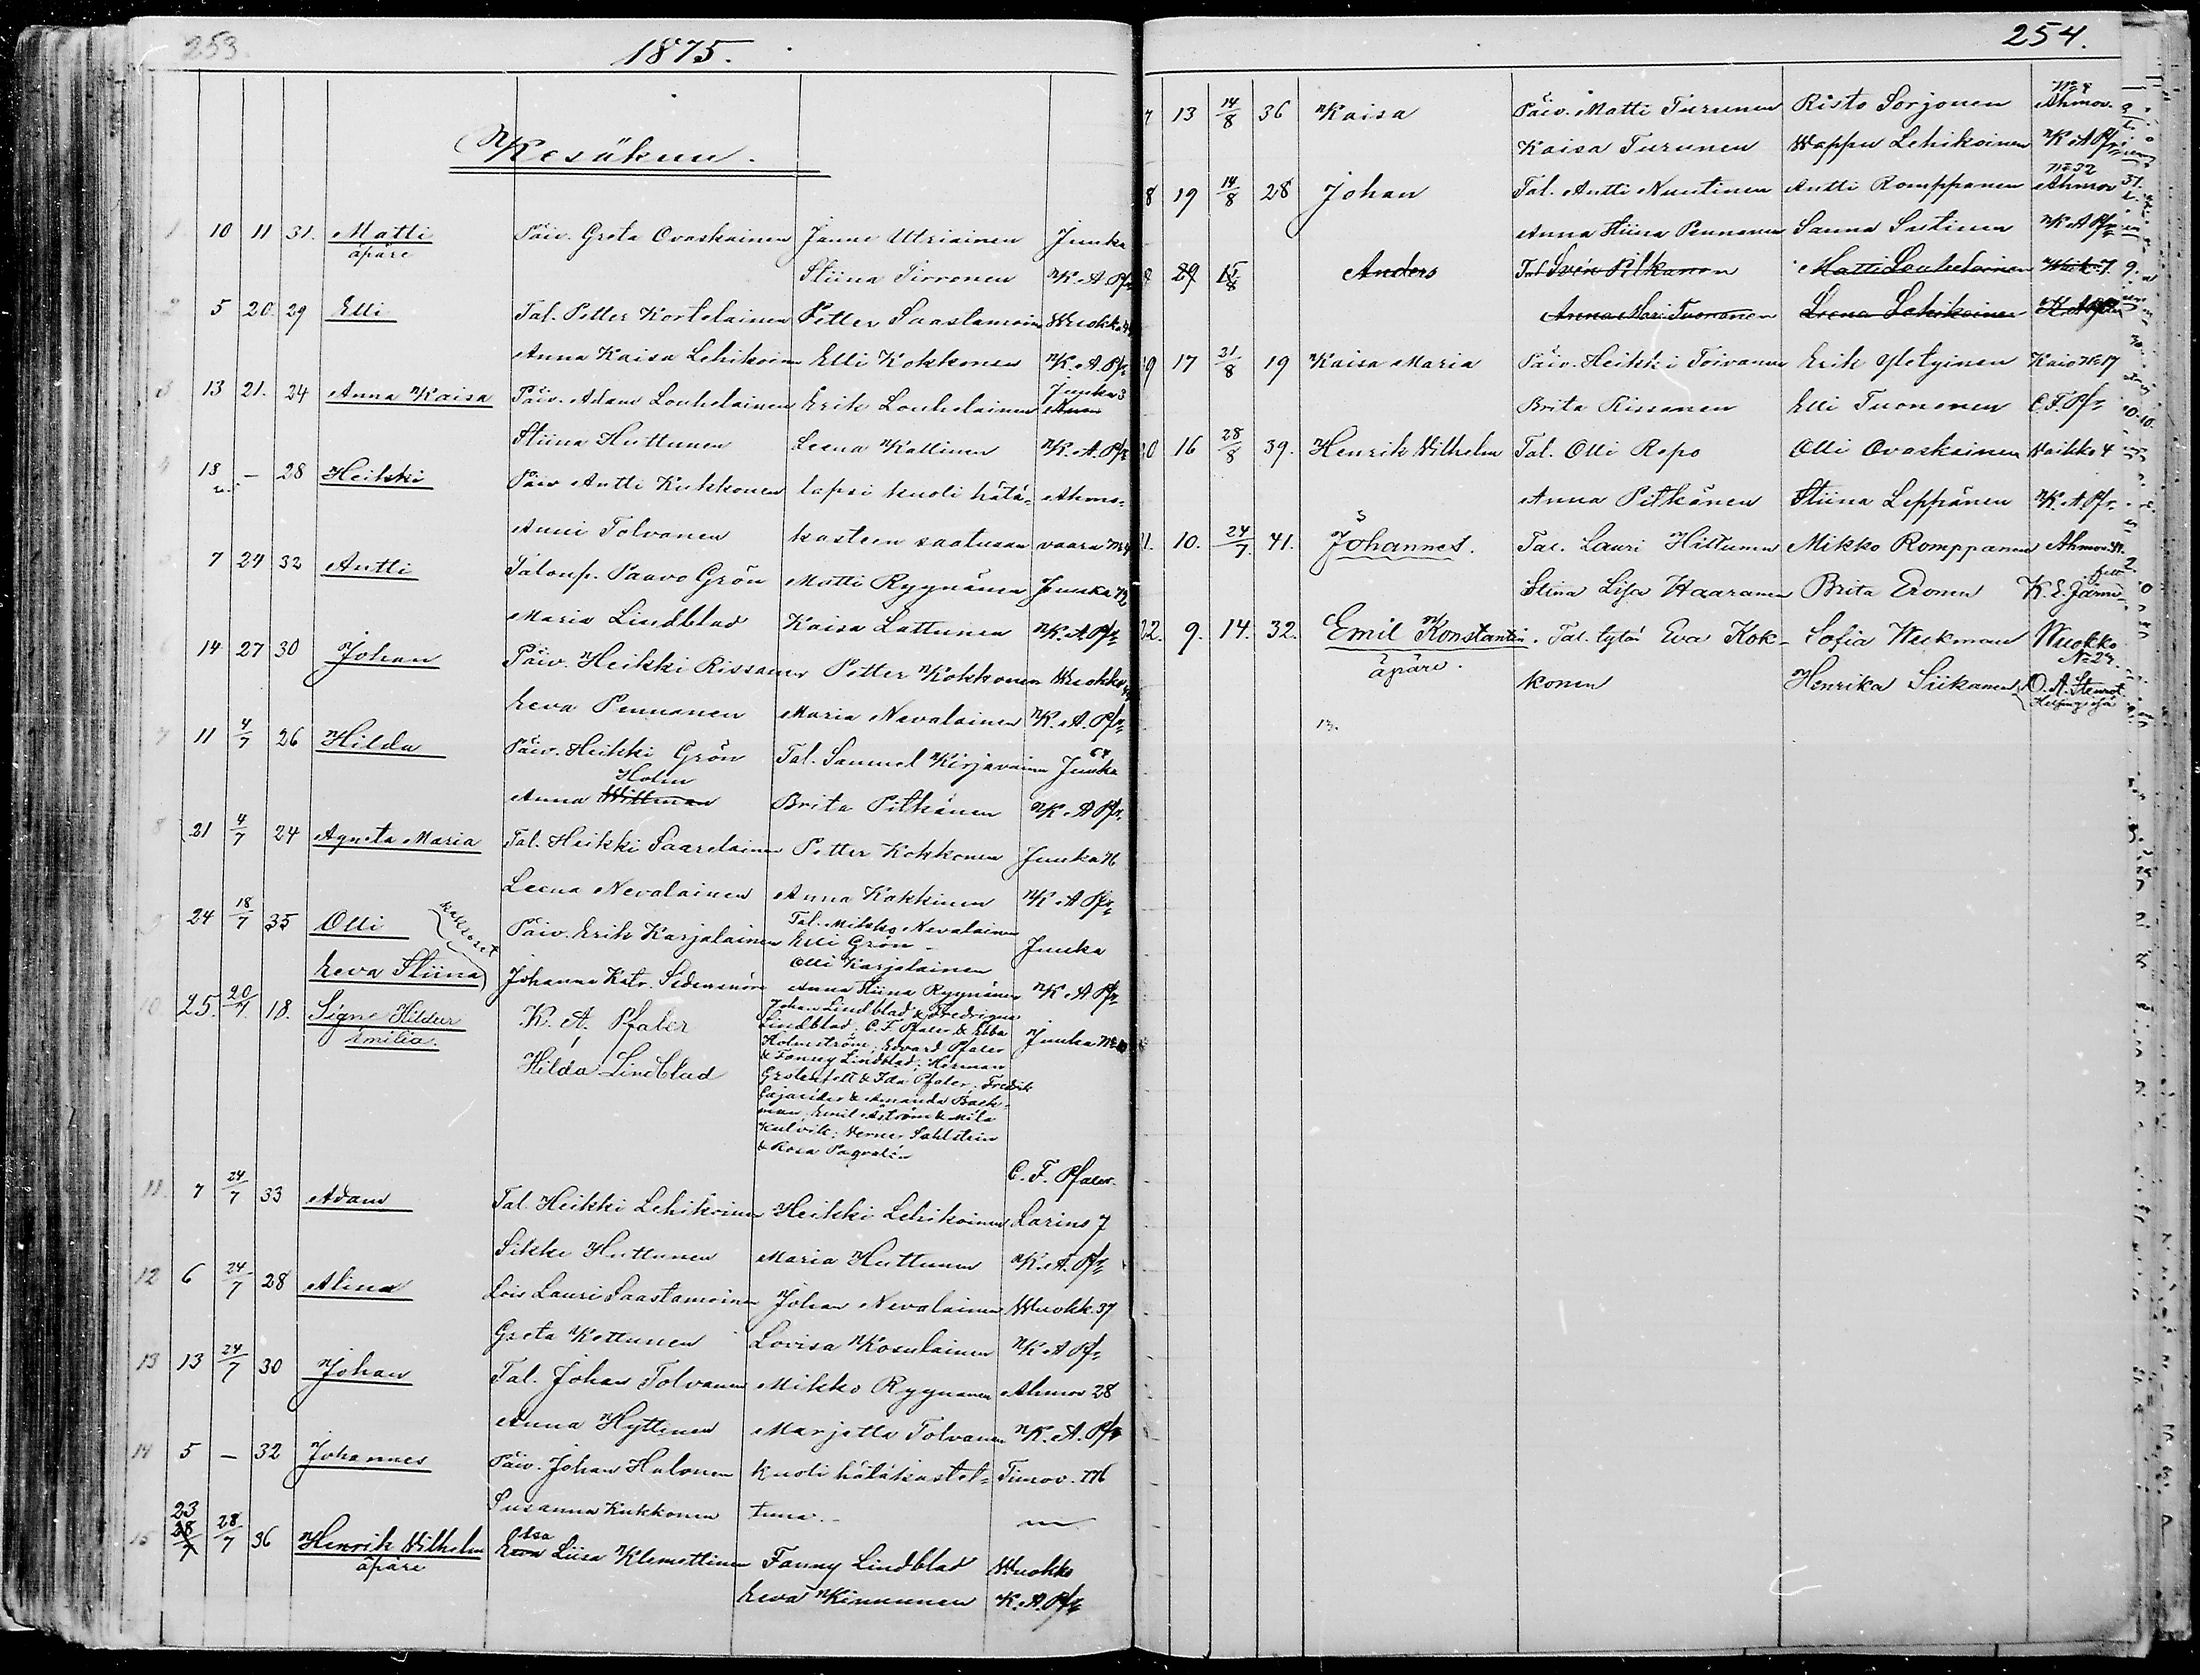 253.
1875.
Kesäkuu.
1. 10 11 31. Matti Päiv. Greta Ovaskainen Janne Utriainen Juuka
äpäre Stiina Tirronen K. A. Pfr
2 5 20. 29 Elli Tal. Petter Kortelainen Petter Saastamoin Wuokko
Anna Kaisa Lehikoinen Elli Kokkonen K. A. Pfr
3 13 21. 24 Anna Kaisa Päiv. Adam Louhelainen Erik Louhelainen Juuka 3
Stiina Huttunen Leena Kallinen K. A. Pfr
4 18 — 28 Heikki Päiv Antti Kukkonen lapsi kuoli hätä- Ahmo-
Anni Tolvanen kasteen saatuaan vaara
5 7 27 32 Antti Talonp. Paavo Grön Matti Ryynänen Juuka
Maria Lindblad Kaisa Lattunen K. A. Pfr
6 14 27 30 Johan Päiv. Heikki Rissanen Petter Kokkonen Wuokko
Eeva Pennanen Maria Nevalainen K. A. Pfr
7 11 4/7 26 Hilda Päiv. Heikki Grön Tal. Samuel Kirjavainen Juuka
Holm
Anna Willman Brita Pitkänen K. A Pfr
8 21 4/7 24 Agneta Maria Tal. Heikki Saarelainen Petter Kokkonen Juuka 76
Leena Nevalainen Anna Kakkinen K A Pfr
9 24 18/7 35 Olli kaksoset Päiv. Erik Karjalainen Tal. Mikko Nevalainen
Elli Grön Juuka
Olli Karjalainen
Eeva Stiina Johanna Katr. Anna Stiina Ryynänen K A Pfr
10 25. 20/7 18. Signe Hildur K. A. Pfaler Johan Lindblad & Fredrique
Emilia. Lindblad; C. F. Pfaler & Ebba
Holmström; Edvard Pfaler Juuka
& Fanny Lindblad; Herman
Hilda Lindblad & Ida Pfaler; Fredrik
Cajander & Amanda Back-
man, Emil Aström & Mila
Kulvik; Verner Sahlstein
& Rosa
C. F. Pfaler.
11. 7 24/7 33 Adam Tal. Heikki Lehikoinen Heikki Lehikoinen Larins 7
Sikke Huttunen Maria Huttunen K. A. Pfr
12 6 24/7 28 Alina Lois Lauri Saastamoinen Johan Nevalainen Wuokk. 37
Greta Kettunen Lovisa Kosulainen K A Pfr
13 13 24/7 30 Johan Tal. Johan Tolvanen Mikko Ryynänen Ahmov 28
Anna Hyttinen Marjetta Tolvanen K. A. Pfr
14 5 — 32 Johannes Päiv. Johan Halonen kuoli hätäkastet- Timov.
Susanna Kukkonen tuna.
15 23 28/7 28/7 36 Henrik Vilhelm Eeva Liisa Klemettinen Fanny Lindblad Wuokko
äpäre Eeva Kinnunen K. A. Pfr
254.
7 13 14/8 36 Kaisa Päiv. Matti Turunen Risto Sorjonen Ahmov.
Kaisa Turunen Wappu Lehikoinen K A Pfr
8 19 14/8 28 Johan Tal. Antti Nuutinen Antti Romppanen No 32 Ahmov
Anna Stiina Pennanen Sanna Sutinen K A Pfr
8 29 15/8 Anders Tal Sven Pitkänen Matti Louhelainen
Anna Mari Tuononen Leena Lehikoinen
19 17 21/8 19 Kaisa Maria Päiv. Heikki Toivanen Erik Kaio No 17
Brita Rissanen Elli Tuononen C. F. Pfr
20 16 28/8 39. Henrik Vilhelm Tal. Olli Repo Olli Ovaskainen Vaikko 4
Anna Pitkänen Stiina Leppänen K. A Pfr.
21. 10. 24/7 41. Johannes. Tal. Lauri Hiltunen Mikko Romppanen Ahmov.
Stina Lisa Haaranen Brita Eronen K. E. Järnefelt
22. 9. 14. 32. Emil Konstantin. Tal. tytär Eva Kok- Sofia Weckman Wuokko
äpäre. No 27.
konen Henrika Siikanen O. A. Stenrot